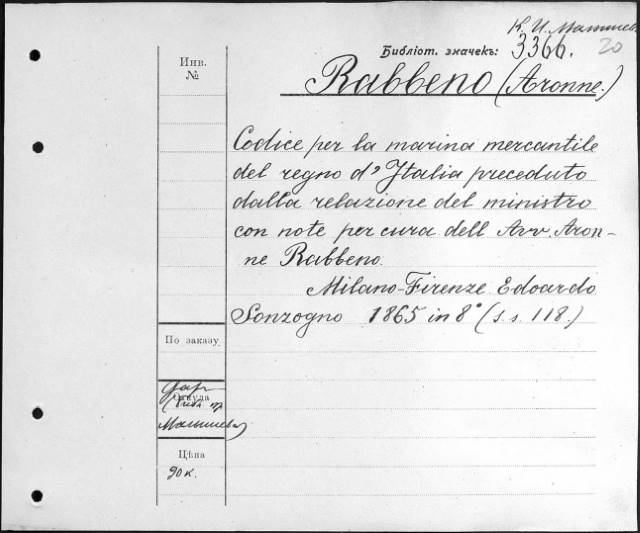 К. И. Малышев.
Библіот. значекъ: 3366.
20
Rabbeno (Aronne.)
Инв.
№
Codice per la marina mercantile
del regno d'Italia preceduto
dalla relazione del ministro
con note per cura dell Avv. Aron-
ne Rabbeno.
Milano-Firenze Edoardo
Sonzogno 1865 in 8° (s. s. 118.)
По заказу
Откуда
дар
Малышева)
Цѣна
90 к.